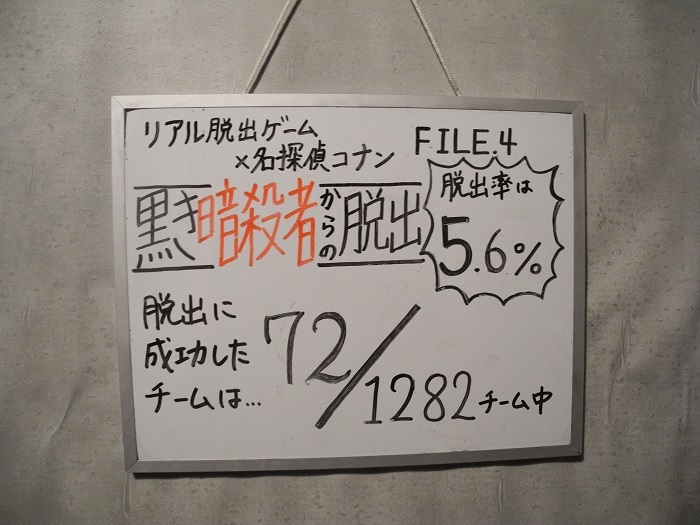 リアル脱出ゲーム
×名探偵コナン
FILE.4
黒き暗殺者からの脱出
脱出率は
5.6%
脱出に
成功した
チームは…
72/1282チーム中